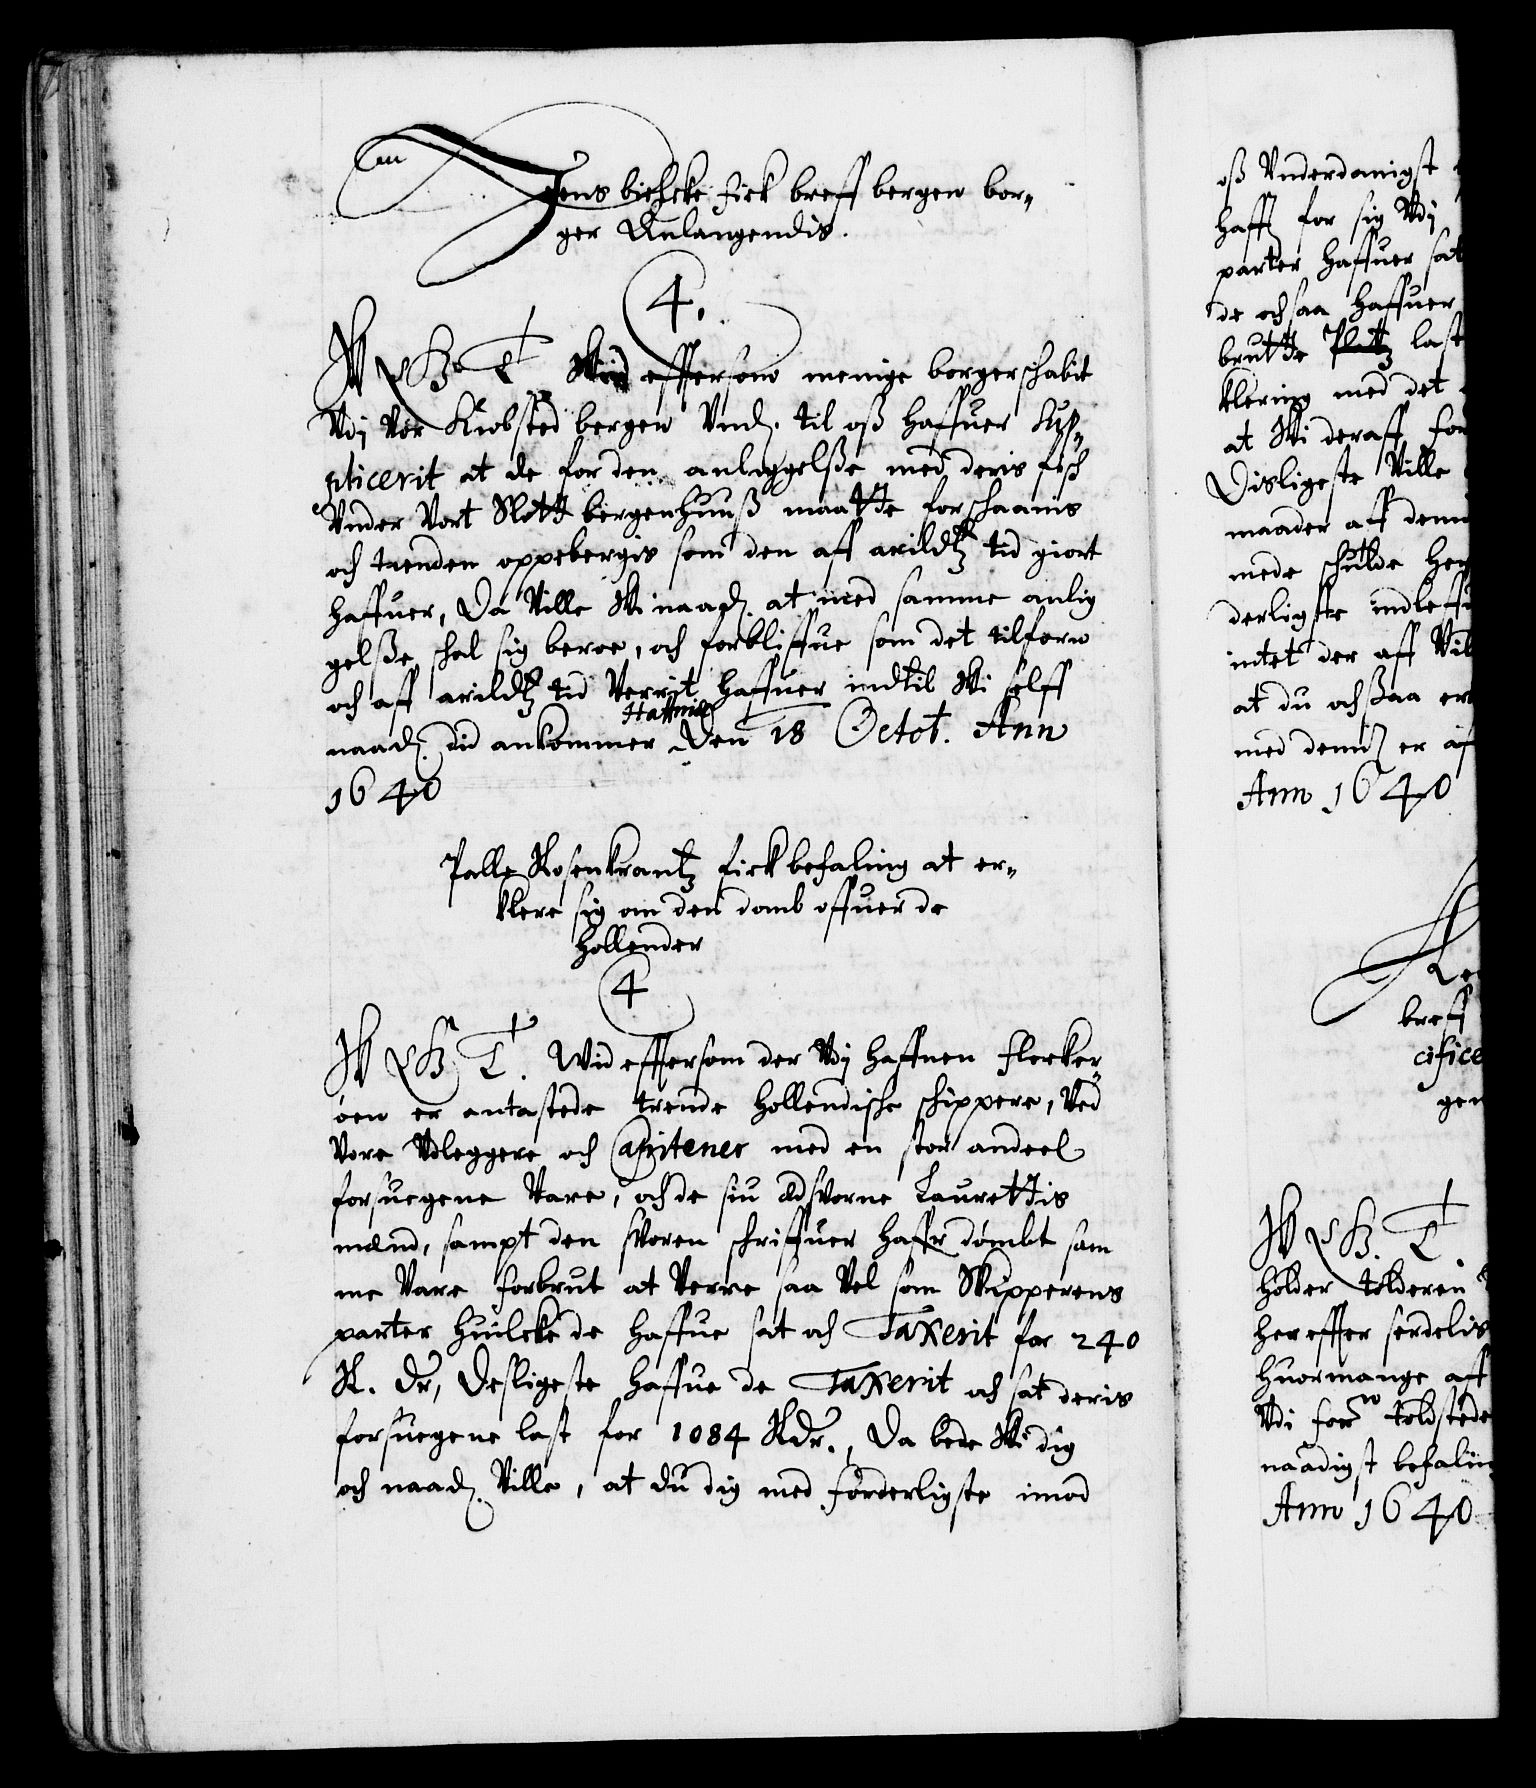 Jens bielcke fick breff bergen bor¬
ger Anlangendis.
4.
W G T Wid effersom menige borgerschabit
Vdj Vor Kiøbsted bergen Vnd. til oß haffuer Sup¬
plicerit at de for den anleggelße med deris fisch
Vnder Vort Slott bergenhuuß maatte forschaanis
och tienden oppebergis som den aff arildtz tid giort
haffuer, Da Ville Wi naad. at med samme anlig
gelße schal sig beroe, och forbliffue som det tilforn
och aff arildtz tid Verrit haffuer indtil Wi selff
naad. did ankommer Haffniæ Den 18 Octob. Ann
1640
Palle Rosenkrantz fick befaling at er¬
klere sig om den domb offuer de
Hollender
4
W G T. Wid effersom der Vdj haffnen flecker¬
øen er antastede trende hollendische schippere, Ved
Vore Vdleggere och Capitener med en stor andeel
forsuegene Vare, och de siu Edsvorne Laurettis
mænd, sampt den svoren schriffuer haffr dømbt sam
me Vare forbrut at Verre saa Vel som Skipperens
parter huilcke de haffue sat och Taxerit for 240
R. Dr, Desligeste haffue de Taxerit och sat deris
forsuegene last for 1084 Rdr., Da bede Wi dig
och naad. Ville, at du dig med forderligste imod
oß Vnderdanigst
haffr for sig Vdj
parter haffuer sat
de och saa haffuer
brutte last
klering med det
at Wi deraff for
Disligeste Ville
maader aff denn
mede schulde her
derligste indleff
intet der aff Vil
at du och saa er
med dennd er af
Ann 1640
breff
cifice
gen
W G. T
holder tolderen
her effter serdelis
huormange aff
Vdi for toldstede
naadigst befalin
Ann 1640